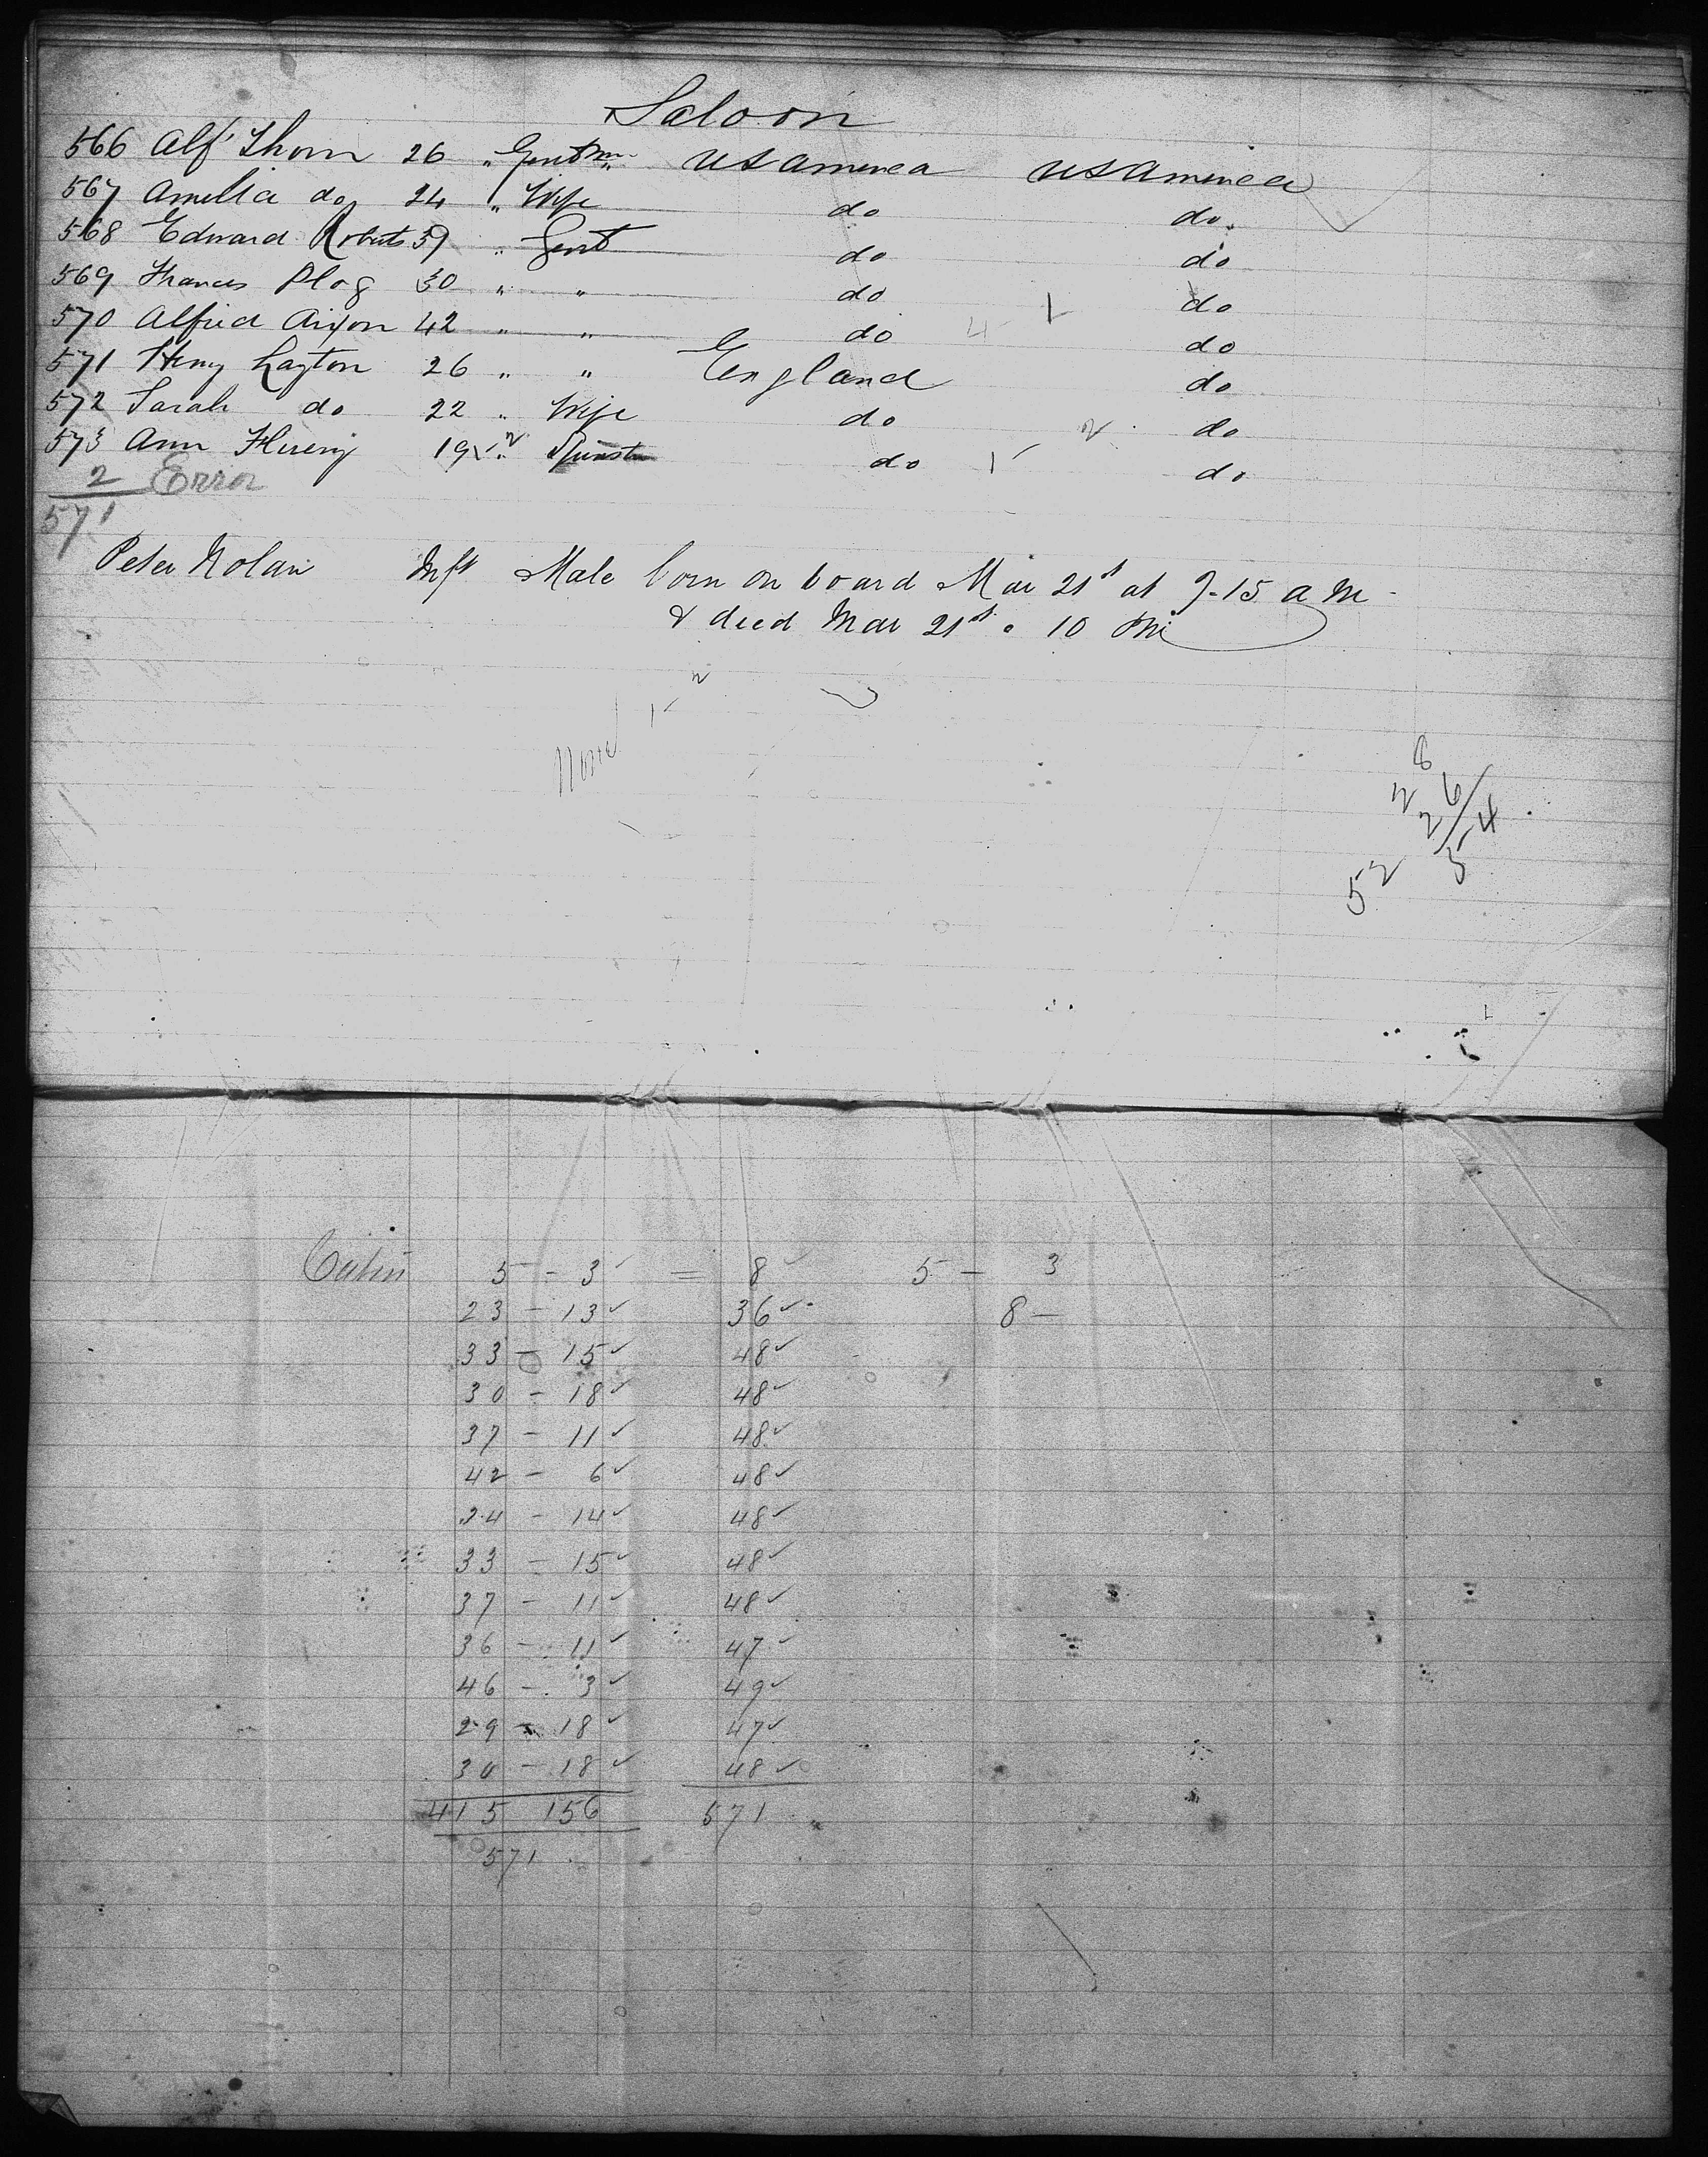 Saloon
566 Alf Thorn 26 " Gentmn US America US America
567 Amelia do 24 " Wife do do
568 Edward Roberts 59 " Gent do do
569 Frances Plog 30 " " do 1 do
570 Alfred 42 " " do 4 do
571 Henry Layton 26 " " England do
572 Sarah do 22 " Wife do 2 do
573 Ann 19 " Spinster do 1 do
2 Error
571
Peter Nolan Inft Male born on board Mar 21st at 9.15 a m
& died Mar 21st " 10 Pm
2
1
8
2 6
2 4
52 5
Cabin 5 - 3 = 8 5 - 3
23 - 13 36 8 -
33 - 15 48
30 - 18 48
37 - 11 48
42 - 6 48
34 - 14 48
33 - 15 48
37 - 11 48
36 - 11 47
46 - 3 49
29 - 18 47
30 - 18 48
415 156 571
571